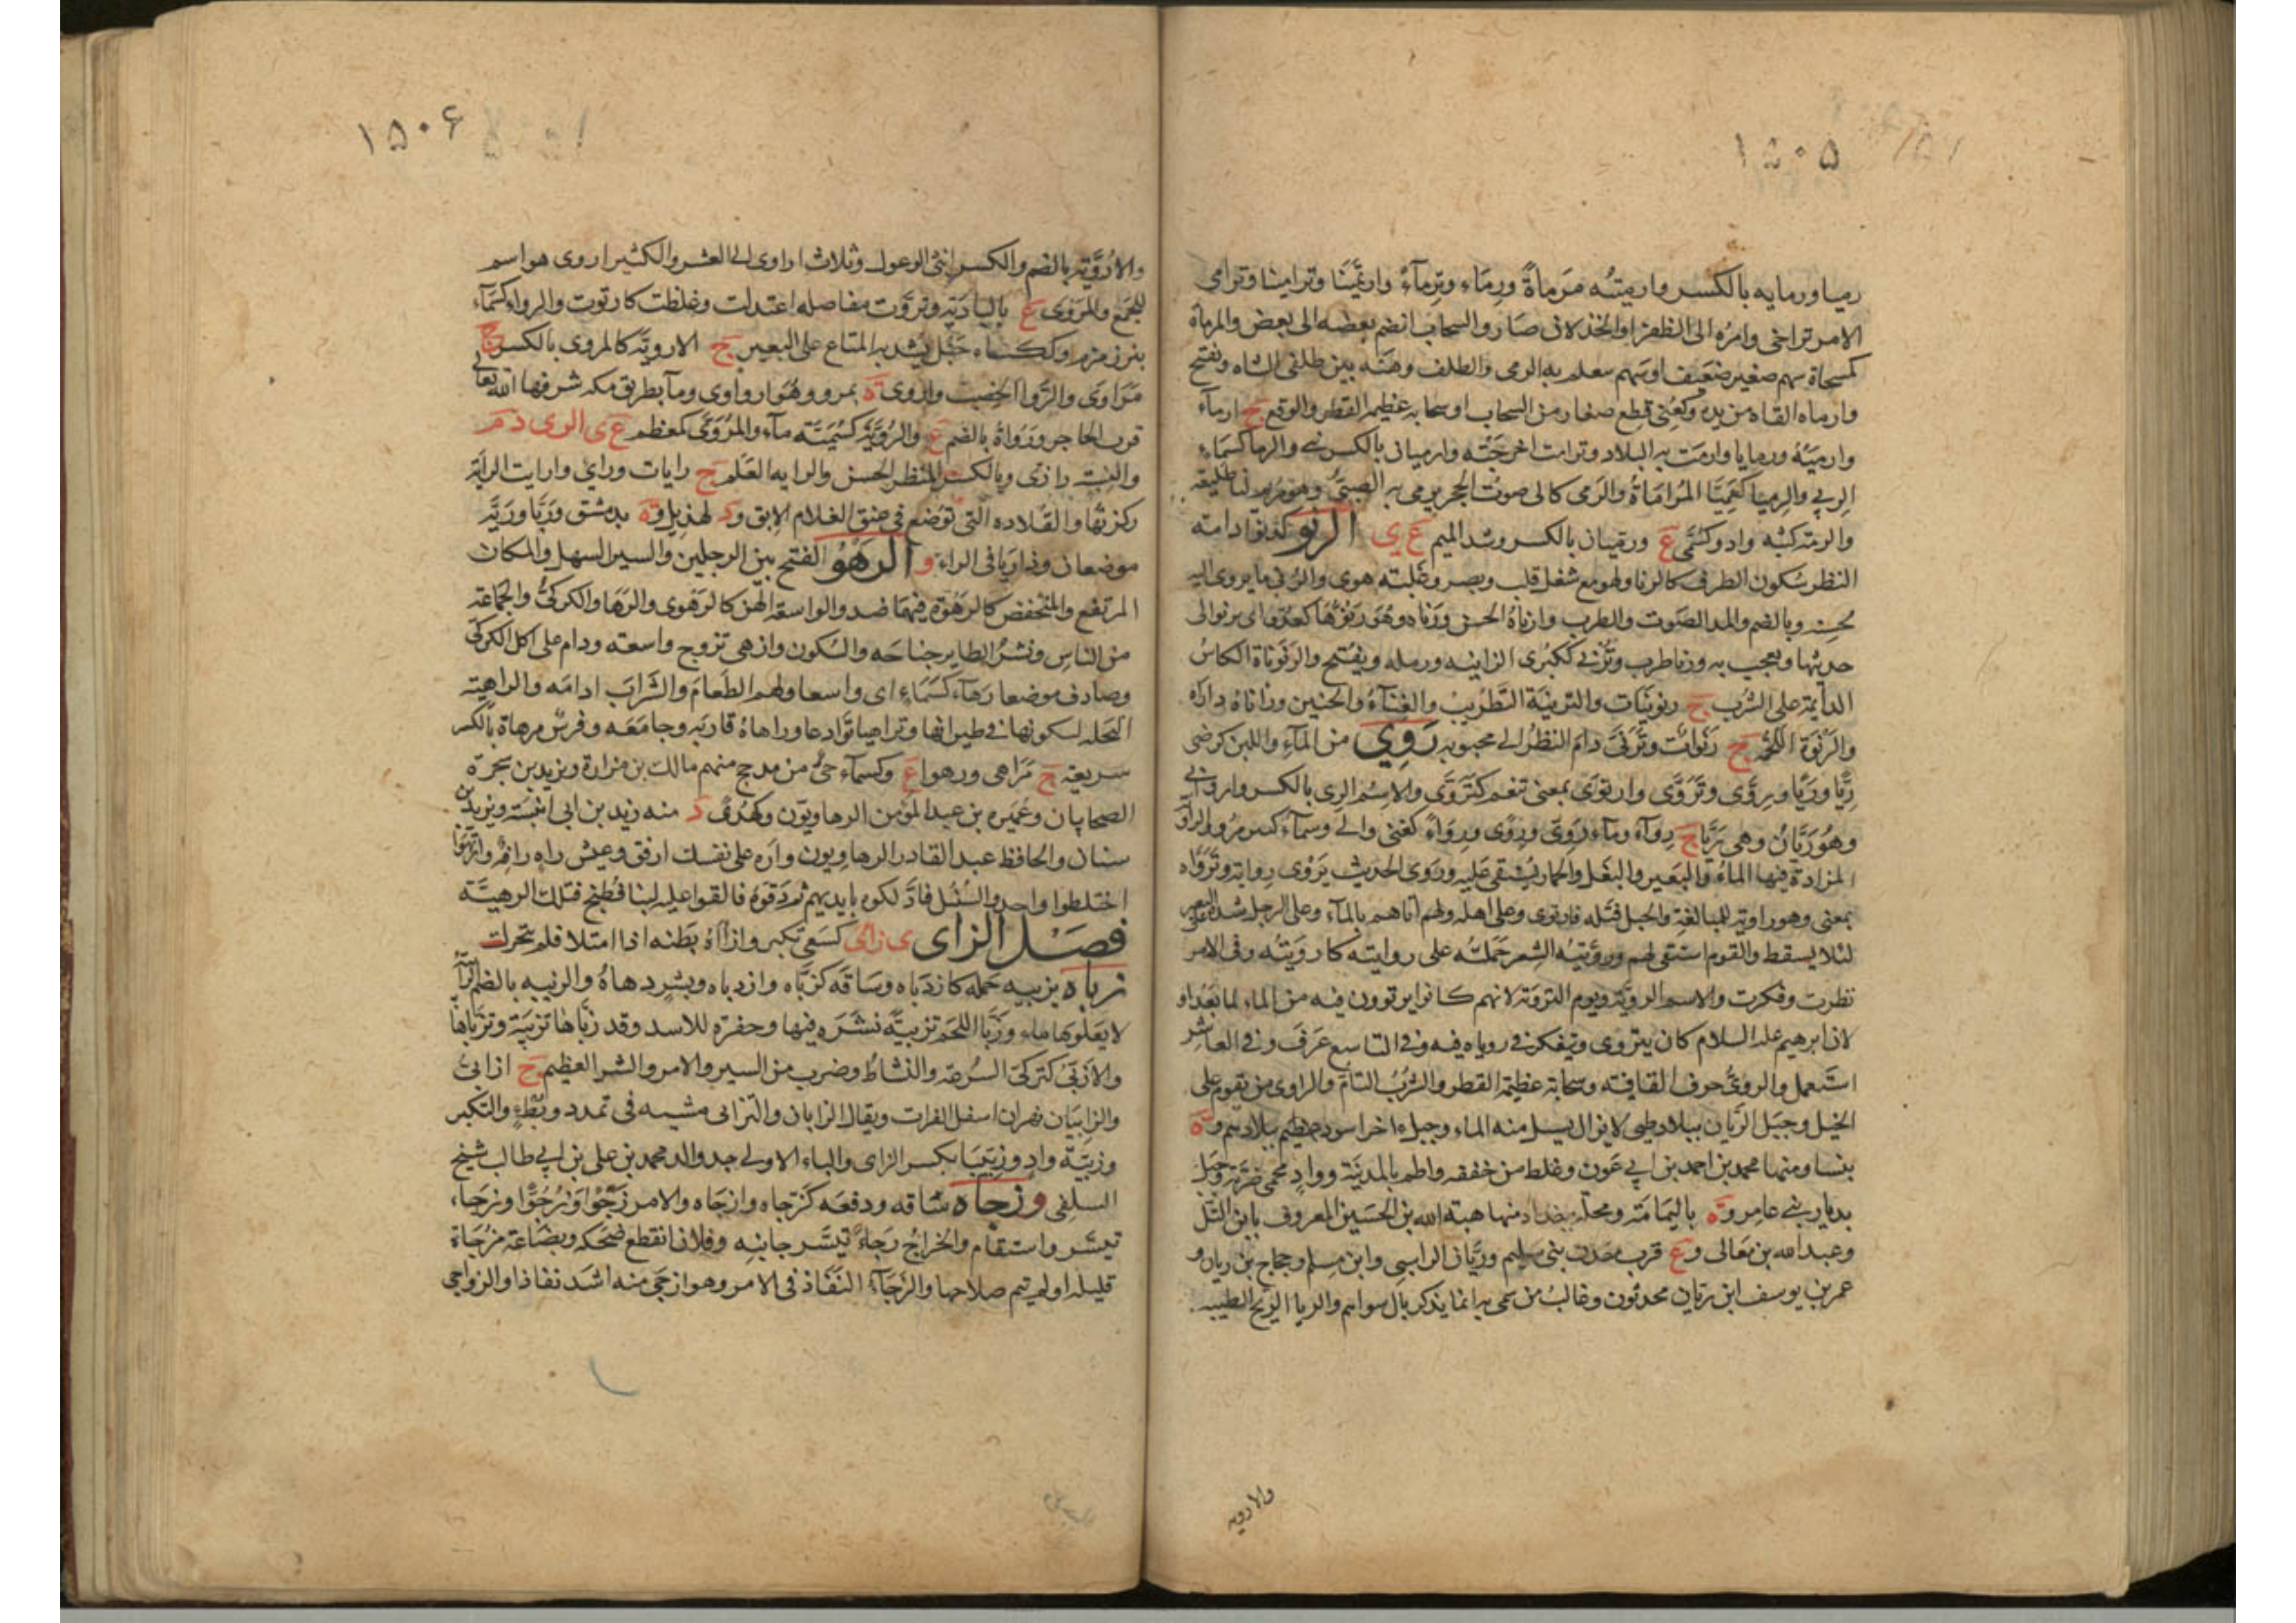 ۱۵۰۵
رميا ورمايه بالكسر وارميتُه مَرماةً ورِمَاء وتِرمآءً وارتَمَينَا وترامينا وترامى
الامر تراخى وامرُه الى الظفر او الخذلان صَار والسحاب انضم بعضه الى بعض والمرماة
كمسحاة سهم صغير ضعيف او سهم يتعلم به الرمى والظلف وهنَه بين ظلفى الشاه وتفتح
وارماه القاه من يده وكغَنِى قطع صغار من السحاب او سحابه عظيمه القطر والوقع ج ارمآء
وارميَة ورمايا وارمت به البلاد وترامت اخرجَته وارميان بالكسر ع والرما كسَماء
الربى والرميا كعَمِيَّا المُراماةُ والرَمى كالى صوت الحجر يرمى به الصبىُّ وهو مرتم لنا طليعه
والرمته كثبه واد وكسُمَّى ع ورقيان بالكسر وشد الميم ع ى الرنو كدنو ادامته
النظر بسُكون الطرف كالرنا ولهو مع شغل قلب وبصر وغلبته هوى والرنا ما يرنى اليه
لحسنه وبالضم والمد الصَوت والطرب وارناهُ الحسن ورَنّاه وهُو رَنُوُّهَا كعدُوٍّ اى يرنو الى
حديثها ويعجب به ورنا طرب وتُرنى كحُبرى الزانيه ورمله ويفتح والرنوناة الكاسُ
الدايمة على الشرب ج رنونيات والترنيَة التَّطريبُ والغناءُ والحنين ورناناهُ داراه
والرَنْوَة اللحمه ج رَنَوات وتَرَنَّى دام النظر الى محبوبه رَوِىَ من المآءِ واللبن كرضى
رِيًّا ورَيًّا ورِوًى وتَرَوَّى وارتوى بمعنى تنعم كتَرَوَّى والاسم الرِى بالكسر واروانى
وهُو رَيَّانُ وهى ريَّا ج رِواءٌ وماء رَوِىٌّ ورِوًى ورِوَاءٌ كغنى والى وسماء كثير مرو والراو
المزادة فيها الماءُ والبَعير والبَغل والحمار يُستقى عَليه ورَوى الحديث يَروى رِوايه وتَرَوّاه
بمعنى وهو راوية للمبالغة والحبل فتله فارتوى وعلى اهله ولهم اتاهم بالمآء وعلى الرجل شده
لئلا يسقط والقوم استقى لهم وروَّيتُه الشعر حَمَلتُه على روايته كارويتُه وفى الامر
نظرت وفكرت والاسم الرويّة ويوم التروية لانهم كانوا يرتوون فيه من الماء لما بَعدُ او
لان ابرهيم عله السلام كان يتروى ويتفكر فى روياه فيه وفى التاسع عَرَف وفى العاشر
استَعمل والروىُّ حرف القافيه وسحابة عظيمة القطر والشُربُ التام والراوى من يقوم على
الخيل وجبَل الرَّيان ببلاد طى لا يزال يسيل منه الماء وجبل اخر اسود عظيم ببلادهم وة
بنسا ومنها محمد بن احمد بن ابى عَون وغلط من خففه واطم بالمدينة وواد بحمى ضَرّية وجبَل
بديار بنى عامر وة باليمامَة ومحلّه ببغداد منها هبة الله بن الحسَين المعروف بابن التَل
وعبد الله بن معالى وع قرب معدن بنى سليم وريَّان الراسبى وابن مسلم وحجاج بن ريان و
عمر بن يوسف ابن ريان محدثون وغالبُ من سمى به انما يذكر بال سواهم والريا الريح الطيبه
والارويه
۱۵۰۶
والاُروِيَّة بالضم والكسر انثى الوعول وثلاث اراوى الى العشر والكثير اروى هو اسم
للجَمع والمَروَى ع بالبادَية وتَروَّت مفاصله اعتدلت وغلظت كارتوت والرواء كسَمآء
بئر زمزم وككساء حَبْل يشد به المتاع على البعير ج الارويَة كالمِروى بالكسر ج
مَرَاوى والرُّوا الخصب واروى ة بمرو وهُو ارواوى وماء بطريق مكه شرفها الله تعالى
قرب الحاجر ورُواةُ بالضم ع والرُّوَيَّة كسُمَيَّة ماء والمُرَوَّى كمعظم ع ى الرى د م
والنسبة رازىّ وبالكسر المنظر الحسن والرايه العَلم ج رايات وراىٌ وارايت الراية
ركزتُها والقلاده التى توضع فى عنق الغلام الابق ود لهذيل وة بدمشق وريَّا وريَّه
موضعان وداريَّا فى الراء و الرَهْوُ الفتح بين الرجلين والسير السهل والمكان
المرتفع والمنخفض كالرهوة فيهمَا ضد والواسعة الهَن كالرَهوى والرَهَا والكركىُّ والجَمَاعَة
من الناسِ ونشرُ الطاير جناحَه والسُكون وازهى تزوج واسعته ودام على اكل الكركى
وصادف موضعا رَهَاء كسَمَاء اى واسعا ولهم الطَعامَ والشرابَ ادامَه والراهيته
النحله لسكونها فى طيرانها وتراهيا توادعا وراهاهُ قاربَه وجامَعَه وفرسٌ مرهاة بالكسر
سريعته ج مَرَاهى ورهوا ع وكسماء حىٌّ من مذحج منهم مالك بن مرارة ويزيد بن شجَرة
الصحابيان وعُميره بن عبد المؤمن الرهاويّون وكهُدًى د منه زيد بن ابى انيسَة ويزيد بن
سنان والحافظ عبد القادر الرهاويون واره على نفسك ارفق وعيش راهٍ رافهٌ وارتهَوا
اختلطوا واحد والسُنبُل فادَّلكوه بايديهم ثم دَقوهُ فالقوا عليه لبنا فطبخ فتلك الرهيَّة
فصَل الزاى ى زاى كسَعى تكبر وازآهُ بَطنه اذا امتلا فلم يتحرك
زباه يزبيه حمله كازدباه وساقه كزبَّاه وازدباه وبشرٍ دهاهُ والزبيه بالضم الرابية
لا يَعلوها ماء وزبَّا اللحم تزبيةً نشَرَه فيها وحفره للاسد وقد زَبَّاها تزبية وتزبَّاها
والاُزبىّ كتركىّ السُرعه والنشاط وضرب من السير والامر والشر العظيم ج ازابىّ
والزابِيَان نهران اسفل الفرات ويقال الزابان والتزابى مشيه فى تمدد وبُطء والتكبر
وزبيَة وادٍ وزِبَيبَا بكسر الزاى والباء الاولى جد والد محمد بن على بن ابى طالب شيخ
السلفى و زجاه ساقه ودفعه كزجاه وازجاه والامر زَجْوًا وزُجُوًّا وزَجَاء
تيسَّر واستقام والخراجُ زَجاءً تيسَّر جبايته وفلان انقطع ضحكه وبضاعة مزجاة
قليله او لم يتم صلاحها والزَجَآءُ النَفَاذ فى الامر وهو ازجَى منه اشد نفاذا والزواجى